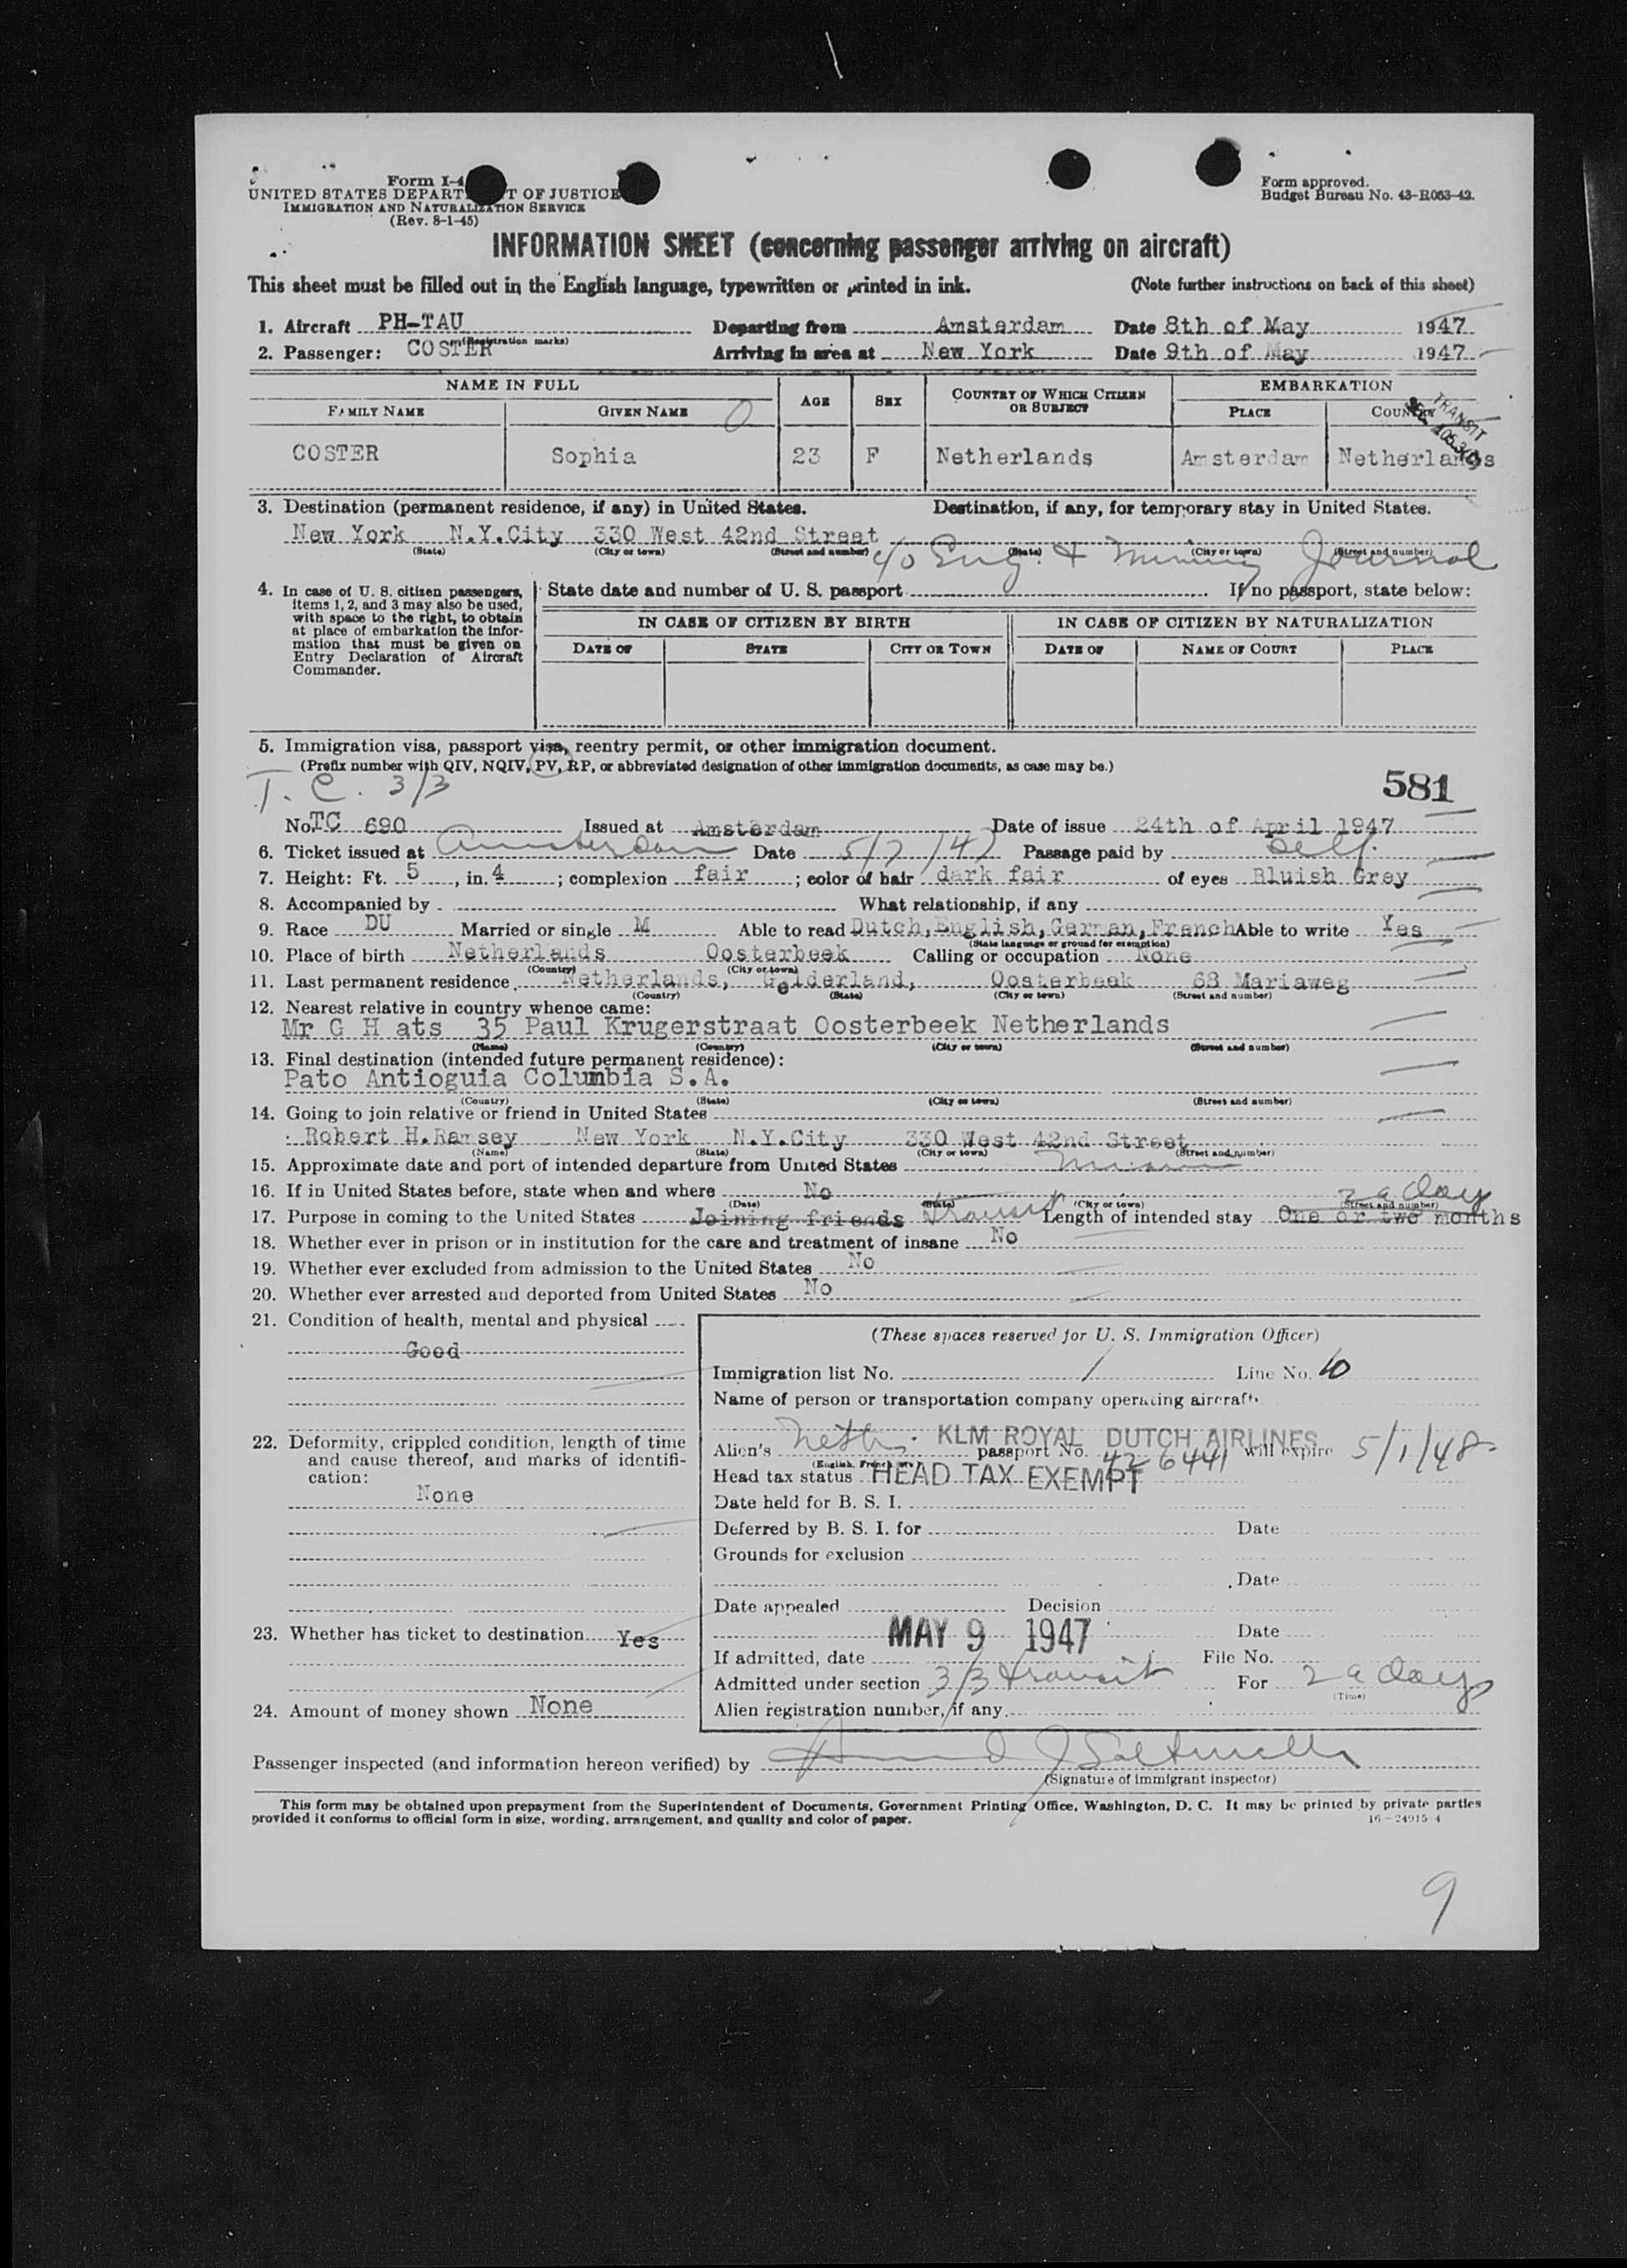 Form I-4
UNITED STATES DEPART T OF JUSTICE
IMMIGRATION AND NATURALIZATION SERVICE
(Rev. 8-1-45)
Form approved.
Budget Bureau No. 43-R063-42.
INFORMATION SHEET (concerning passenger arriving on aircraft)
This sheet must be filled out in the English language, typewritten or printed in ink. (Note further instructions on back of this sheet)
1. Aircraft PH-TAU Departing from Amsterdam Date 8th of May 1947
(Registration marks)
2. Passenger: COSTER Arriving in area at New York Date 9th of May 1947
NAME IN FULL AGE SEX COUNTRY OF WHICH CITIZEN OR SUBJECT EMBARKATION
FAMILY NAME GIVEN NAME PLACE COUNTRY
TRANSIT
COSTER Sophia 23 F Netherlands Amsterdam Netherlands
3. Destination (permanent residence, if any) in United States. Destination, if any, for temporary stay in United States.
New York N.Y.City 330 West 42nd Street
(State) (City or town) (Street and number) (State) (City or town) (Street and number)
c/o Eng. & Mining Journal
4. In case of U. S. citizen passengers, items 1, 2, and 3 may also be used, with space to the right, to obtain at place of embarkation the information that must be given on Entry Declaration of Aircraft Commander.
State date and number of U. S. passport If no passport, state below:
IN CASE OF CITIZEN BY BIRTH IN CASE OF CITIZEN BY NATURALIZATION
DATE OF STATE CITY OR TOWN DATE OF NAME OF COURT PLACE
5. Immigration visa, passport visa, reentry permit, or other immigration document.
(Prefix number with QIV, NQIV, PV, RP, or abbreviated designation of other immigration documents, as case may be.)
T. C. 3/3
581
No. TC 690 Issued at Amsterdam Date of issue 24th of April 1947
6. Ticket issued at Amsterdam Date 5/7/47 Passage paid by Self.
7. Height: Ft. 5, in. 4; complexion fair; color of hair dark fair of eyes Bluish Grey
8. Accompanied by What relationship, if any
9. Race DU Married or single M Able to read Dutch, English, German, French Able to write Yes
(State language or ground for exemption)
10. Place of birth Netherlands Oosterbeek Calling or occupation None
(Country) (City or town)
11. Last permanent residence Netherlands, Gelderland, Oosterbeek 68 Mariaweg
(Country) (State) (City or town) (Street and number)
12. Nearest relative in country whence came:
Mr G H ats 35 Paul Krugerstraat Oosterbeek Netherlands
(Name) (Country) (City or town) (Street and number)
13. Final destination (intended future permanent residence):
Pato Antioguia Columbia S.A.
(Country) (State) (City or town) (Street and number)
14. Going to join relative or friend in United States
Robert H.Ramsey New York N.Y.City 330 West 42nd Street
(Name) (State) (City or town) (Street and number)
15. Approximate date and port of intended departure from United States Miami
16. If in United States before, state when and where No
(Date) (State) (City or town) (Street and number)
29 days
17. Purpose in coming to the United States Joining friends Transit Length of intended stay One or two months
18. Whether ever in prison or in institution for the care and treatment of insane No
19. Whether ever excluded from admission to the United States No
20. Whether ever arrested and deported from United States No
21. Condition of health, mental and physical
Good
22. Deformity, crippled condition, length of time and cause thereof, and marks of identification:
None
23. Whether has ticket to destination Yes
24. Amount of money shown None
(These spaces reserved for U. S. Immigration Officer)
Immigration list No. 1 Line No. 10
Name of person or transportation company operating aircraft
KLM ROYAL DUTCH AIRLINES
Alien's Neth. passport No. 426441 will expire 5/1/48
Head tax status HEAD TAX EXEMPT
Date held for B. S. I.
Deferred by B. S. I. for Date
Grounds for exclusion
Date
Date appealed Decision
MAY 9 1947 Date
If admitted, date File No.
Admitted under section 3/3 transit For 29 days
(Time)
Alien registration number, if any
Passenger inspected (and information hereon verified) by
(Signature of immigrant inspector)
This form may be obtained upon prepayment from the Superintendent of Documents, Government Printing Office, Washington, D. C. It may be printed by private parties
provided it conforms to official form in size, wording, arrangement, and quality and color of paper.
16-24915-4
9